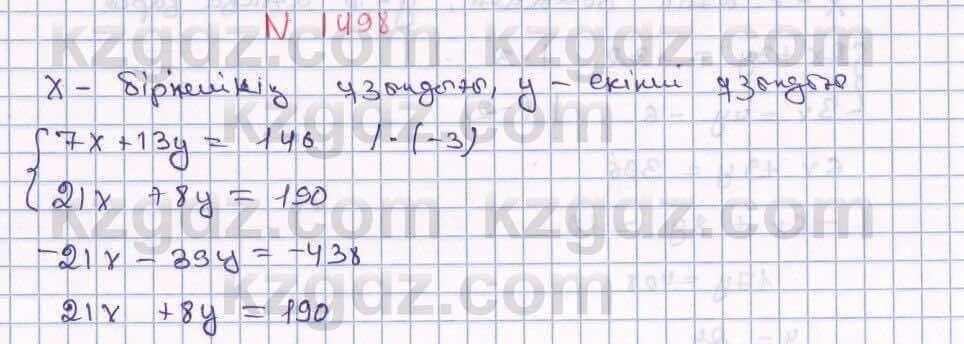 N 1498
x - бірнешікің ұзындығы, y - екінші ұзындығы
{ 7x + 13y = 146 / · (-3)
21x + 8y = 190
-21x - 39y = -438
21x + 8y = 190
kzgdz.com